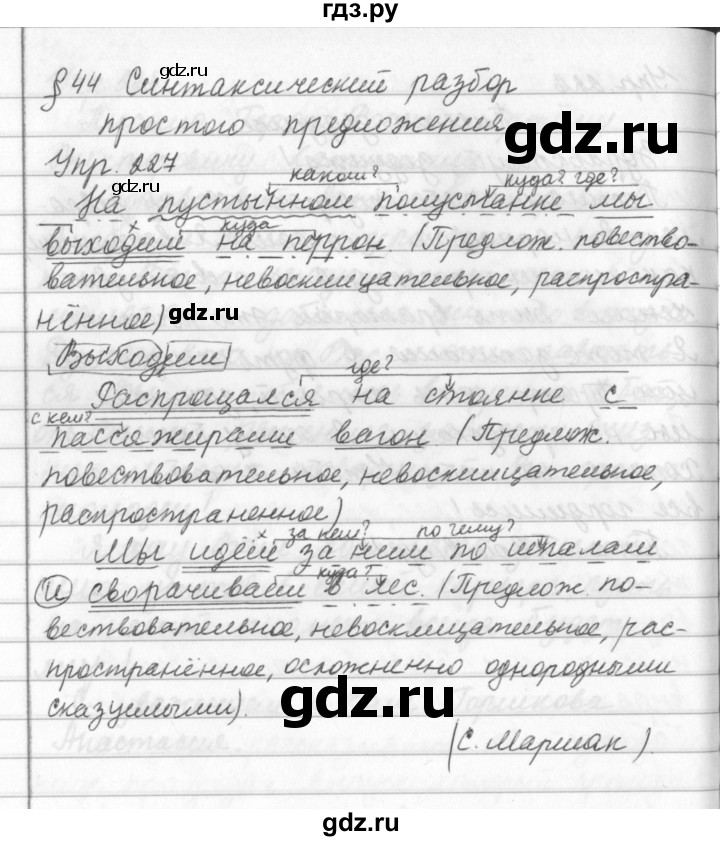 гдз.ру
§ 44 Синтаксический разбор
gdz.ru gdz.ru
простого предложения
Упр. 227 gdz.ru
каком? куда? где?
На пустынном полустанке мы
куда
выходим на перрон (Предлож. повество-
вательное, невосклицательное, распростра-
нённое) gdz.ru
Выходим
где?
Распрощался на стоянке с
с кем?
пассажирами вагон (Предлож.
повествовательное, невосклицательное,
распространенное)
за кем? по чему?
Мы идём за ним по шпалам
куда?
и сворачиваем в лес. (Предлож. по-
вествовательное, невосклицательное, рас-
пространённое, осложненно однородными
сказуемыми). gdz.ru
(С. Маршак).
gdz.ru